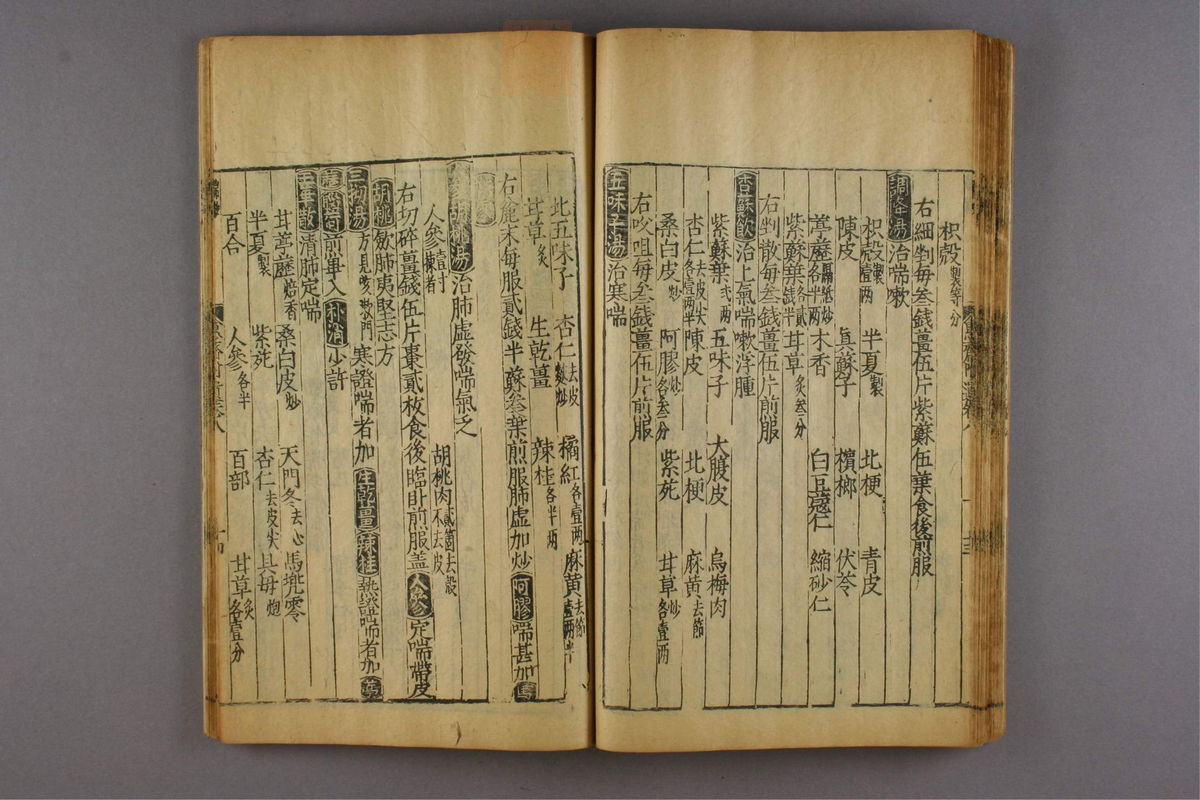 枳殻製等分
右細剉每叁錢薑伍片紫蘇伍葉食後煎服
調降湯治喘嗽
枳殻製壹兩 半夏製 北梗 青皮
陳皮 真蘇子 檳榔 伏苓
葶藶隔紙炒各半兩 木香 白豆蔻仁 縮砂仁
紫蘇葉各貳錢半 甘草炙叁分
右剉散每叁錢薑伍片煎服
杏蘇飲治上氣喘嗽浮腫
紫蘇葉弍兩 五味子 大腹皮 烏梅肉
杏仁去皮尖各壹兩半 陳皮 北梗 麻黄去節
桑白皮炒 阿膠炒各叁分 紫菀 甘草炒各壹兩
右㕮咀每叁錢薑伍片煎服
五味子湯治寒喘
北五味子 杏仁去皮麩炒 橘紅各壹兩 麻黄去節壹兩半
甘草炙 生乾薑 辣桂各半兩
右麄末每服貳錢半蘇叁葉煎服肺虚加炒阿膠喘甚加馬
人參胡桃湯治肺虚發喘氣乏
人參壹寸 胡桃肉貳箇去殻不去皮
右切碎薑錢伍片棗貳枚食後臨卧煎服盖人參定喘帶皮
胡桃斂肺夷堅志方
三拗湯方見咳嗽門 寒證喘者加生乾薑辣桂熱證喘者加
煎車入朴消少許
玉華散清肺定喘
甘葶藶焙香 桑白皮炒 天門冬去心 馬兜零
半夏製 紫菀 杏仁去皮尖 貝母炮
百合 人參各半 百部 甘草炙各壹分